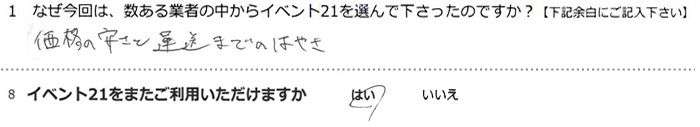 1 なぜ今回は、数ある業者の中からイベント21を選んで下さったのですか?【下記余白にご記入下さい】
価格の安さと運送までのはやさ
8 イベント21をまたご利用いただけますか はい いいえ